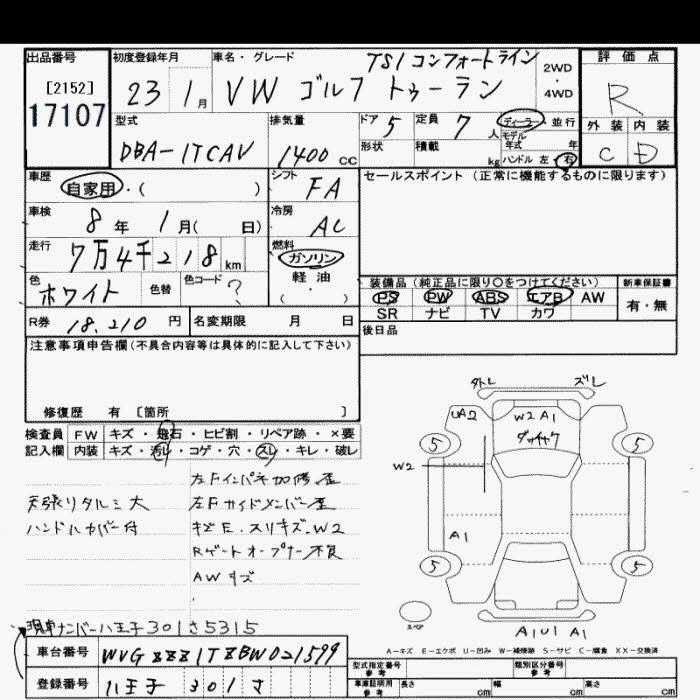 出品番号
[2152]
17107
初度登録年月
23 1月
車名・グレード
TSI コンフォートライン
VW ゴルフ トゥーラン
2WD
・
4WD
評価点
R
外装 内装
C D
型式
DBA-1TCAV
排気量
1400 CC
ドア 5
定員 7 人
形状
積載 kg
ディーラー・並行
モデル
年式 年
ハンドル 左・右
車歴
自家用・( )
シフト
FA
セールスポイント(正常に機能するものに限ります)
車検
8年 1月( 日)
冷房
AC
走行
7万4千218km
燃料
ガソリン
軽油
( )
色
ホワイト
色替
色コード ?
装備品(純正品に限り○をつけてください)
PS PW ABS エアB AW
SR ナビ TV カワ
新車保証書
有・無
R券 18.210 円
名変期限 月 日
後日品
注意事項申告欄(不具合内容等は具体的に記入して下さい)
修復歴 有 [箇所 ]
検査員
記入欄
FW キズ・飛石・ヒビ割・リペア跡・×要
内装 キズ・汚レ・コゲ・穴・スレ・キレ・破レ
左Fインパネ加修歪
天張りタルミ大
左Fサイドメンバー歪
ハンドルカバー付
キズE.スリキズ.W2
Rゲートオープナー不良
AWキズ
外レ ズレ
UA2
W2 A1
ダッシャク
5 5
W2
A1
5 5
スペア
A1U1 A1
A-キズ E-エクボ U-凹み W-補修跡 S-サビ C-腐食 XX-交換済
現車ナンバー八王子301さ5315
車台番号 WVGZZZ1TZBW021599
登録番号 八王子 301 さ
型式指定番号
参考
類別区分番号
参考
車庫証明用
参考
長さ cm
幅 cm
高さ cm